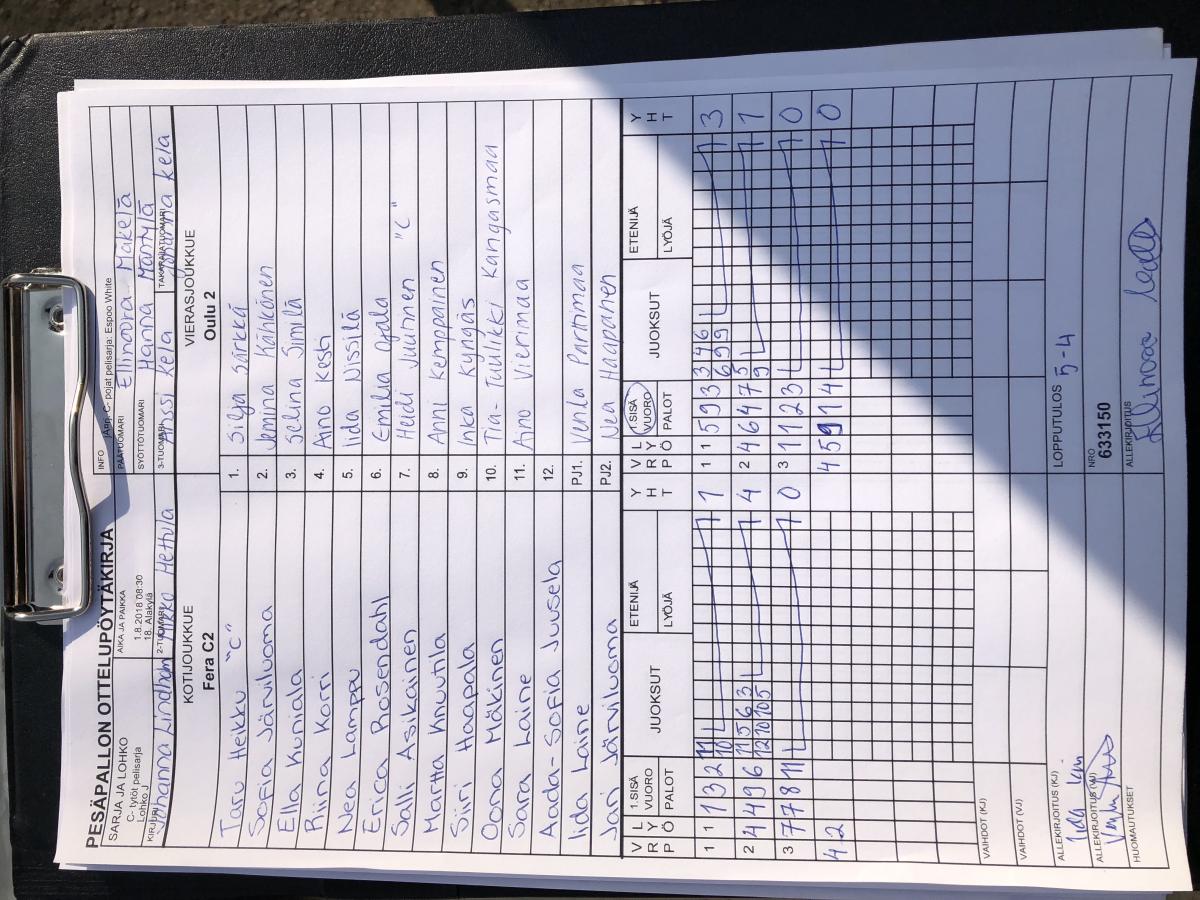 PESÄPALLON OTTELUPÖYTÄKIRJA
SARJA JA LOHKO
C- tytöt pelisarja
Lohko J
AIKA JA PAIKKA
1.8.2018 08:30
18. Alakylä
INFO
C- pojat pelisarja: Espoo White
PÄÄTUOMARI
Ellinoora Mäkelä
SYÖTTÖTUOMARI
Hanna Mäntylä
KIRJURI
Johanna Lindholm
2-TUOMARI
Mikko Hettula
3-TUOMARI
Anssi Kela
TAKARAJATUOMARI
Johanna Kela
KOTIJOUKKUE
Fera C2
VIERASJOUKKUE
Oulu 2
Taru Heikku "C" 1. Silja Särkkä
Sofia Järviluoma 2. Jemina Kähkönen
Ella Kuniala 3. Selina Similä
Riina Korri 4. Aino Kesti
Nea Lamppu 5. Iida Nissilä
Erica Rosendahl 6. Emilia Ojala
Salli Asikainen 7. Heidi Juutinen "C"
Martta Knuutila 8. Anni Kemppainen
Siiri Haapala 9. Inka Kyngäs
Oona Mäkinen 10. Tia-Tuulikki Kangasmaa
Sara Laine 11. Aino Vierimaa
Aada-Sofia Juusela 12.
Iida Laine PJ1. Venla Parttimaa
Jari Järviluoma PJ2. Nea Haapanen
V R P L Y Ö 1.SISÄ VUORO PALOT JUOKSUT ETENIJÄ LYÖJÄ Y H T V R P L Y Ö 1.SISÄ VUORO PALOT JUOKSUT ETENIJÄ LYÖJÄ Y H T
1 1 1 3 2 11 10 1 1 1 5 9 3 3 4 6 6 9 9 3
2 4 4 9 6 11 5 6 3 12 10 10 5 4 2 4 6 4 7 5 9 1
3 7 7 8 11 0 3 1 1 2 3 0
4 2 4 5 9 1 4 0
VAIHDOT (KJ)
VAIHDOT (VJ)
ALLEKIRJOITUS (KJ)
LOPPUTULOS
5-4
ALLEKIRJOITUS (VJ)
NRO
633150
HUOMAUTUKSET
ALLEKIRJOITUS